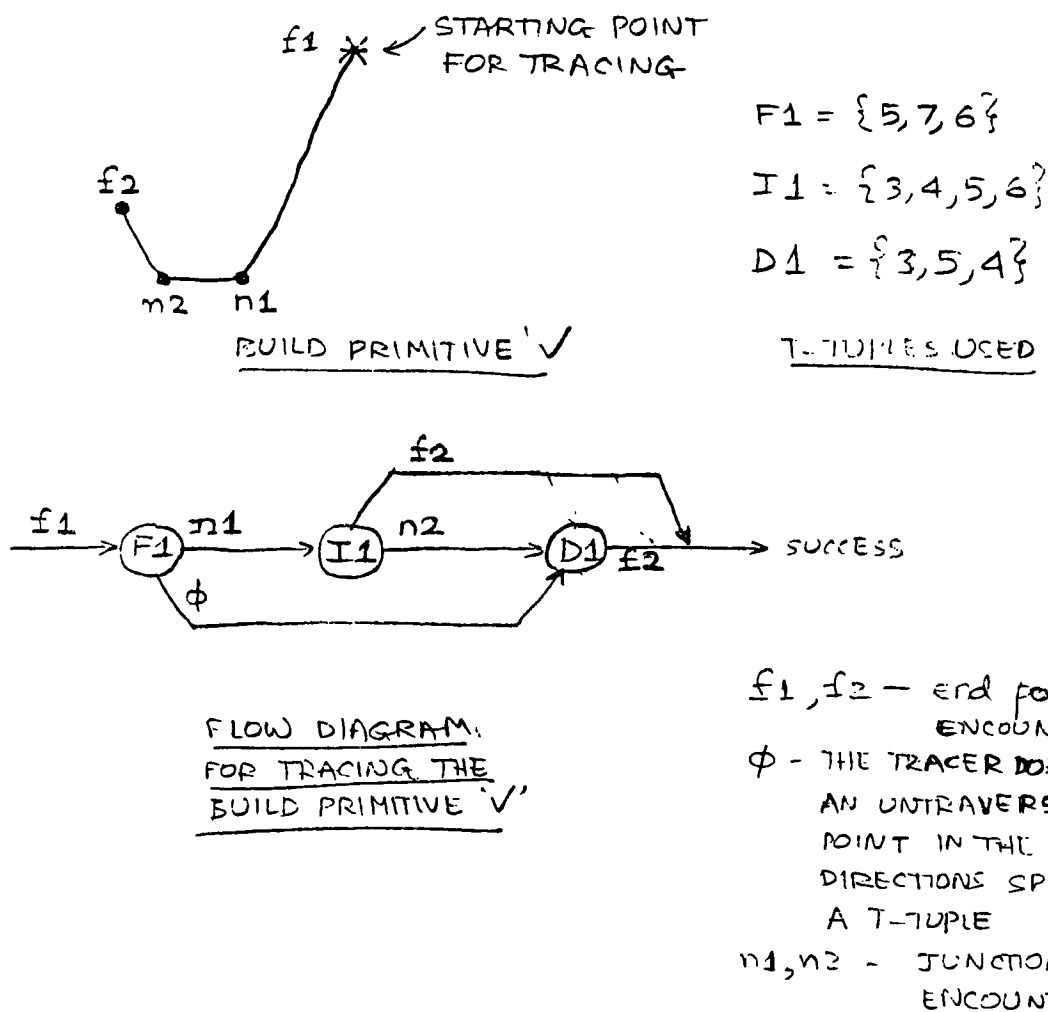 f1
STARTING POINT
FOR TRACING
f2
n2
n1
BUILD PRIMITIVE 'V
F1 = {5,7,6}
I1 = {3,4,5,6}
D1 = {3,5,4}
T-TUPLES USED
f2
f1
F1
n1
I1
n2
D1
f2
SUCCESS
ϕ
FLOW DIAGRAM.
FOR TRACING THE
BUILD PRIMITIVE 'V'
f1, f2 - End po
ENCOUN
ϕ - THE TRACER DO
AN UNTRAVERS
POINT IN THE
DIRECTIONS SP
A T-TUPLE
n1, n2 - JUNCTIO
ENCOUNT